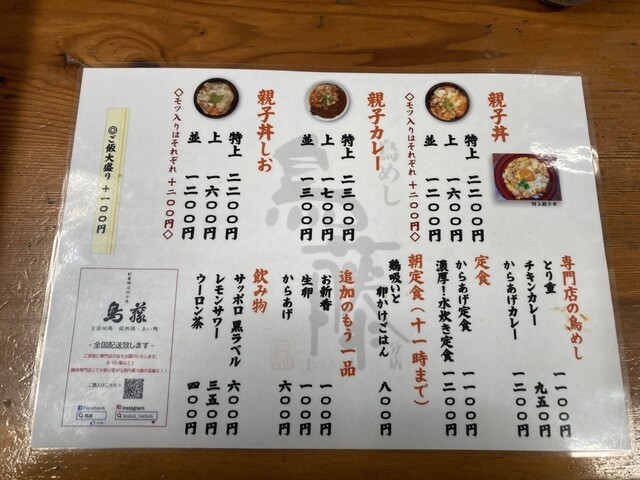 親子丼
特上 二二〇〇円
上 一六〇〇円
並 一二〇〇円
◇モツ入りはそれぞれ +二〇〇円◇
特上親子丼
親子カレー
特上 二三〇〇円
上 一七〇〇円
並 一三〇〇円
親子丼しお
特上 二二〇〇円
上 一六〇〇円
並 一二〇〇円
◇モツ入りはそれぞれ +二〇〇円◇
◎ご飯大盛り+一〇〇円
専門店の鳥めし
とり重 一一〇〇円
チキンカレー 九五〇円
からあげカレー 一二〇〇円
定食
からあげ定食 一一〇〇円
濃厚!水炊き定食 一二〇〇円
朝定食(十一時まで)
鶏吸いと
卵かけごはん 八〇〇円
追加のもう一品
お新香 一〇〇円
生卵 一〇〇円
からあげ 六〇〇円
飲み物
サッポロ黒ラベル 六〇〇円
レモンサワー 三五〇円
ウーロン茶 四〇〇円
鳥めし
鳥藤
分店
鳥藤
- 全国配送致します -
ご購入はこちら⇒
Facebook
鳥藤
Instagram